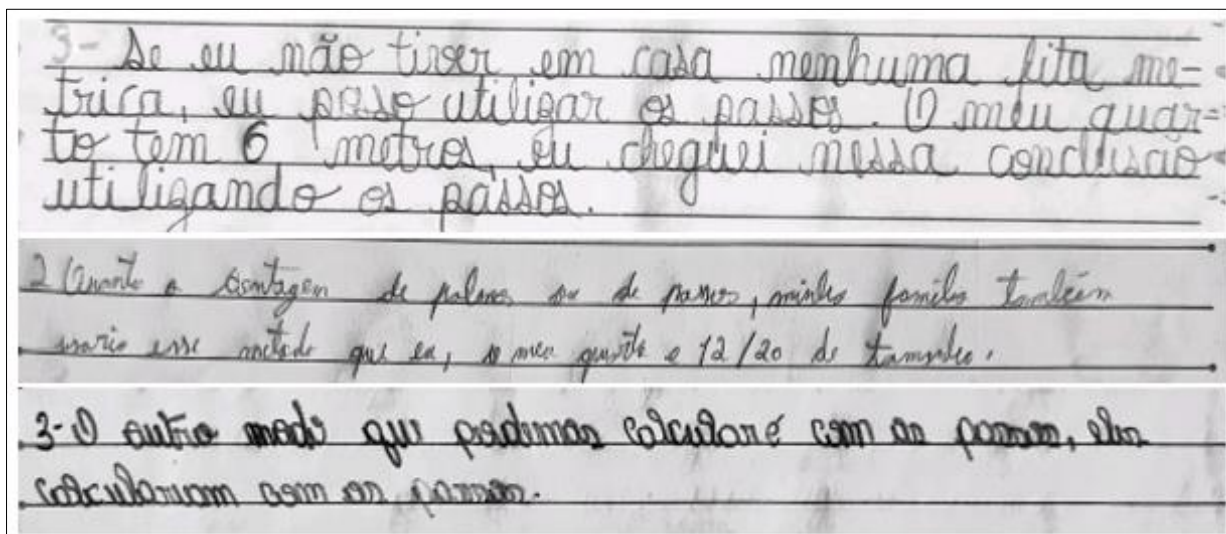 3- Se eu não tiver em casa nenhuma fita mé-
trica, eu poso utilizar os passos. O meu quar-
to tem 6 metros, eu cheguei nessa conclusão
utilizando os passos.
2 Quanto a contagem de palmos ou de passos, minha família também
usaria esse metodo que eu, o meu quarto e 12/20 de tamanho.
3- O outro modo que podemos calcular é com os passos, eles
calculariam com os passos.